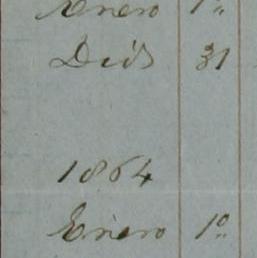 Enero 1º
Dic 31
1864
Enero 1º